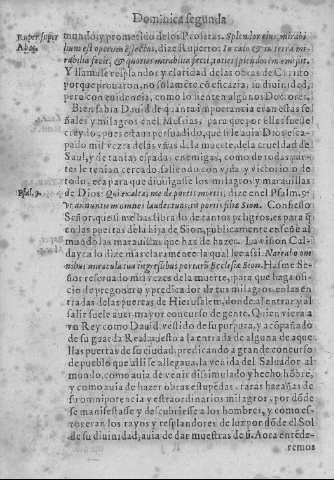 Dominica segunda
Ruper. super Abac.
mundo, y prometido de los Profetas. Splendor eius mirabi
lium est operum eius, dize Ruperto: In caelo & in terra mi-
rabilia fecit, & quoties mirabilia fecit, toties splendorem emisit.
Y llamase resplandor y claridad de las obras de Christo
porque prouaron, no solamente có eficazia, su diuinidad,
pero con euidencia, como lo sienten algunos Dotores.
Bien sabia Dauid de quanta importancia eran estas se
ñales y milagros en el Mesias, para que por ellas fuese
creydo, pues estaua persuadido, que si le auia Dios esca-
pado mil vezes de las vñas de la muerte, de la crueldad de
Saul, y de tantas espadas enemigas, como de todas par-
tes le tenian cercado, saliendo con vida y victoria de
todo, era para que diuulgase los milagros y marauillas
Psal. 9.
de Dios: Qui exaltas me de portis mortis, dize en el Psalm. 9.
vt annuntiem omnes laudes tuas, in portis filiae Sion. Confieso
Señor, que si me has librado de tantos peligros, es para q̃
en las puertas de la hija de Sion, publicamente enseñe al
mundo las marauillas que has de hazer. La vision Cal-
dayca lo dize mas claramente la qual lee asi. Narrabo om
nibus miracula tua ingresibus portarum Ecclesiae Sion. Has me Se-
ñor reseruado mil vezes de la muerte, para que haga ofi-
cio de pregonero y predicador de tus milagros, en las en
tradas de las puertas de Hierusalem, donde al entrar y al
salir suele auer mayor concurso de gente. Quien viera a
vn Rey como Dauid, vestido de su purpura, y acõpañado
de su guarda Real, puesto a la entrada de alguna de aque
llas puertas de su ciudad, predicando a grande concurso
de pueblo que alli se allegaua, la venida del Saluador al
mundo, como auia de venir disimulado y hecho hõbre,
y como auia de hazer obras estupẽdas, raras hazañas de
su omnipotencia y estraordinarios milagros, por dõde
se manifestase y descubriese a los hombres, y como es-
tos eran los rayos y resplandores de luz por dõde el Sol
de su diuinidad, auia de dar muestras de si. Aora entẽde-
remos